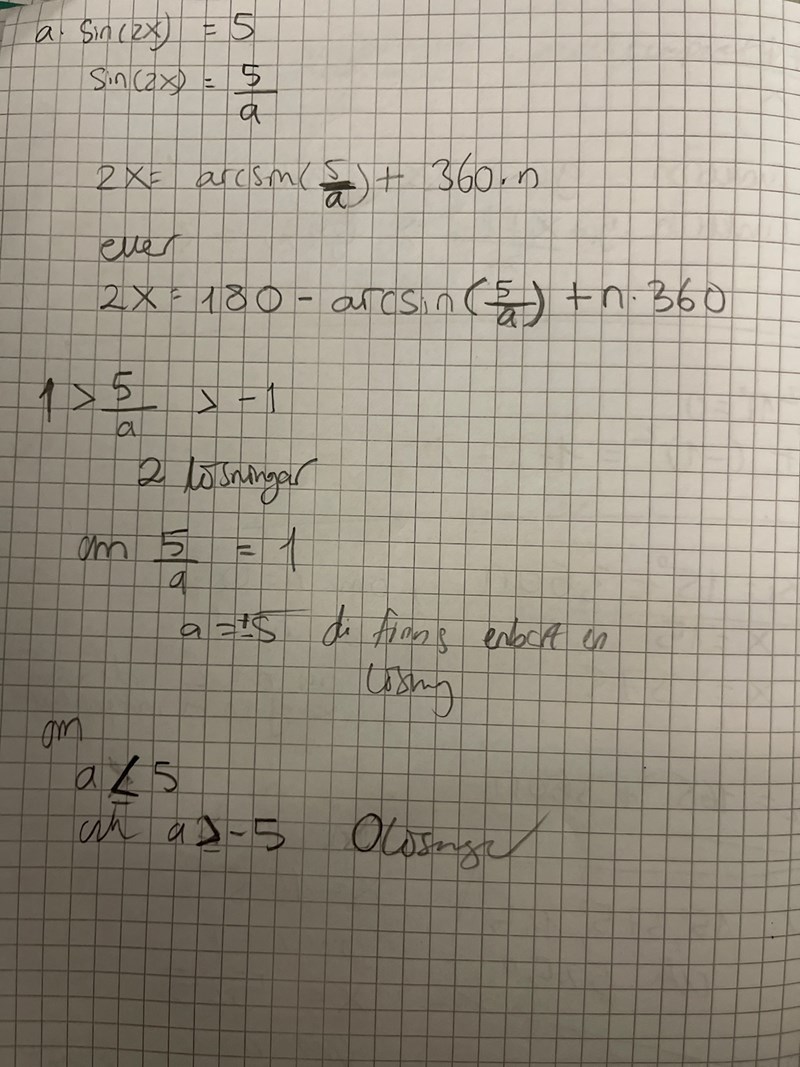 a · sin(2x) = 5
sin(2x) = 5/a
2x = arcsin(5/a) + 360·n
eller
2x = 180 - arcsin(5/a) + n·360
1 > 5/a > -1
2 lösningar
om 5/a = 1
a = ±5 då finns enbart en
lösning
om
a ≤ 5
och a ≥ -5 0 lösningar